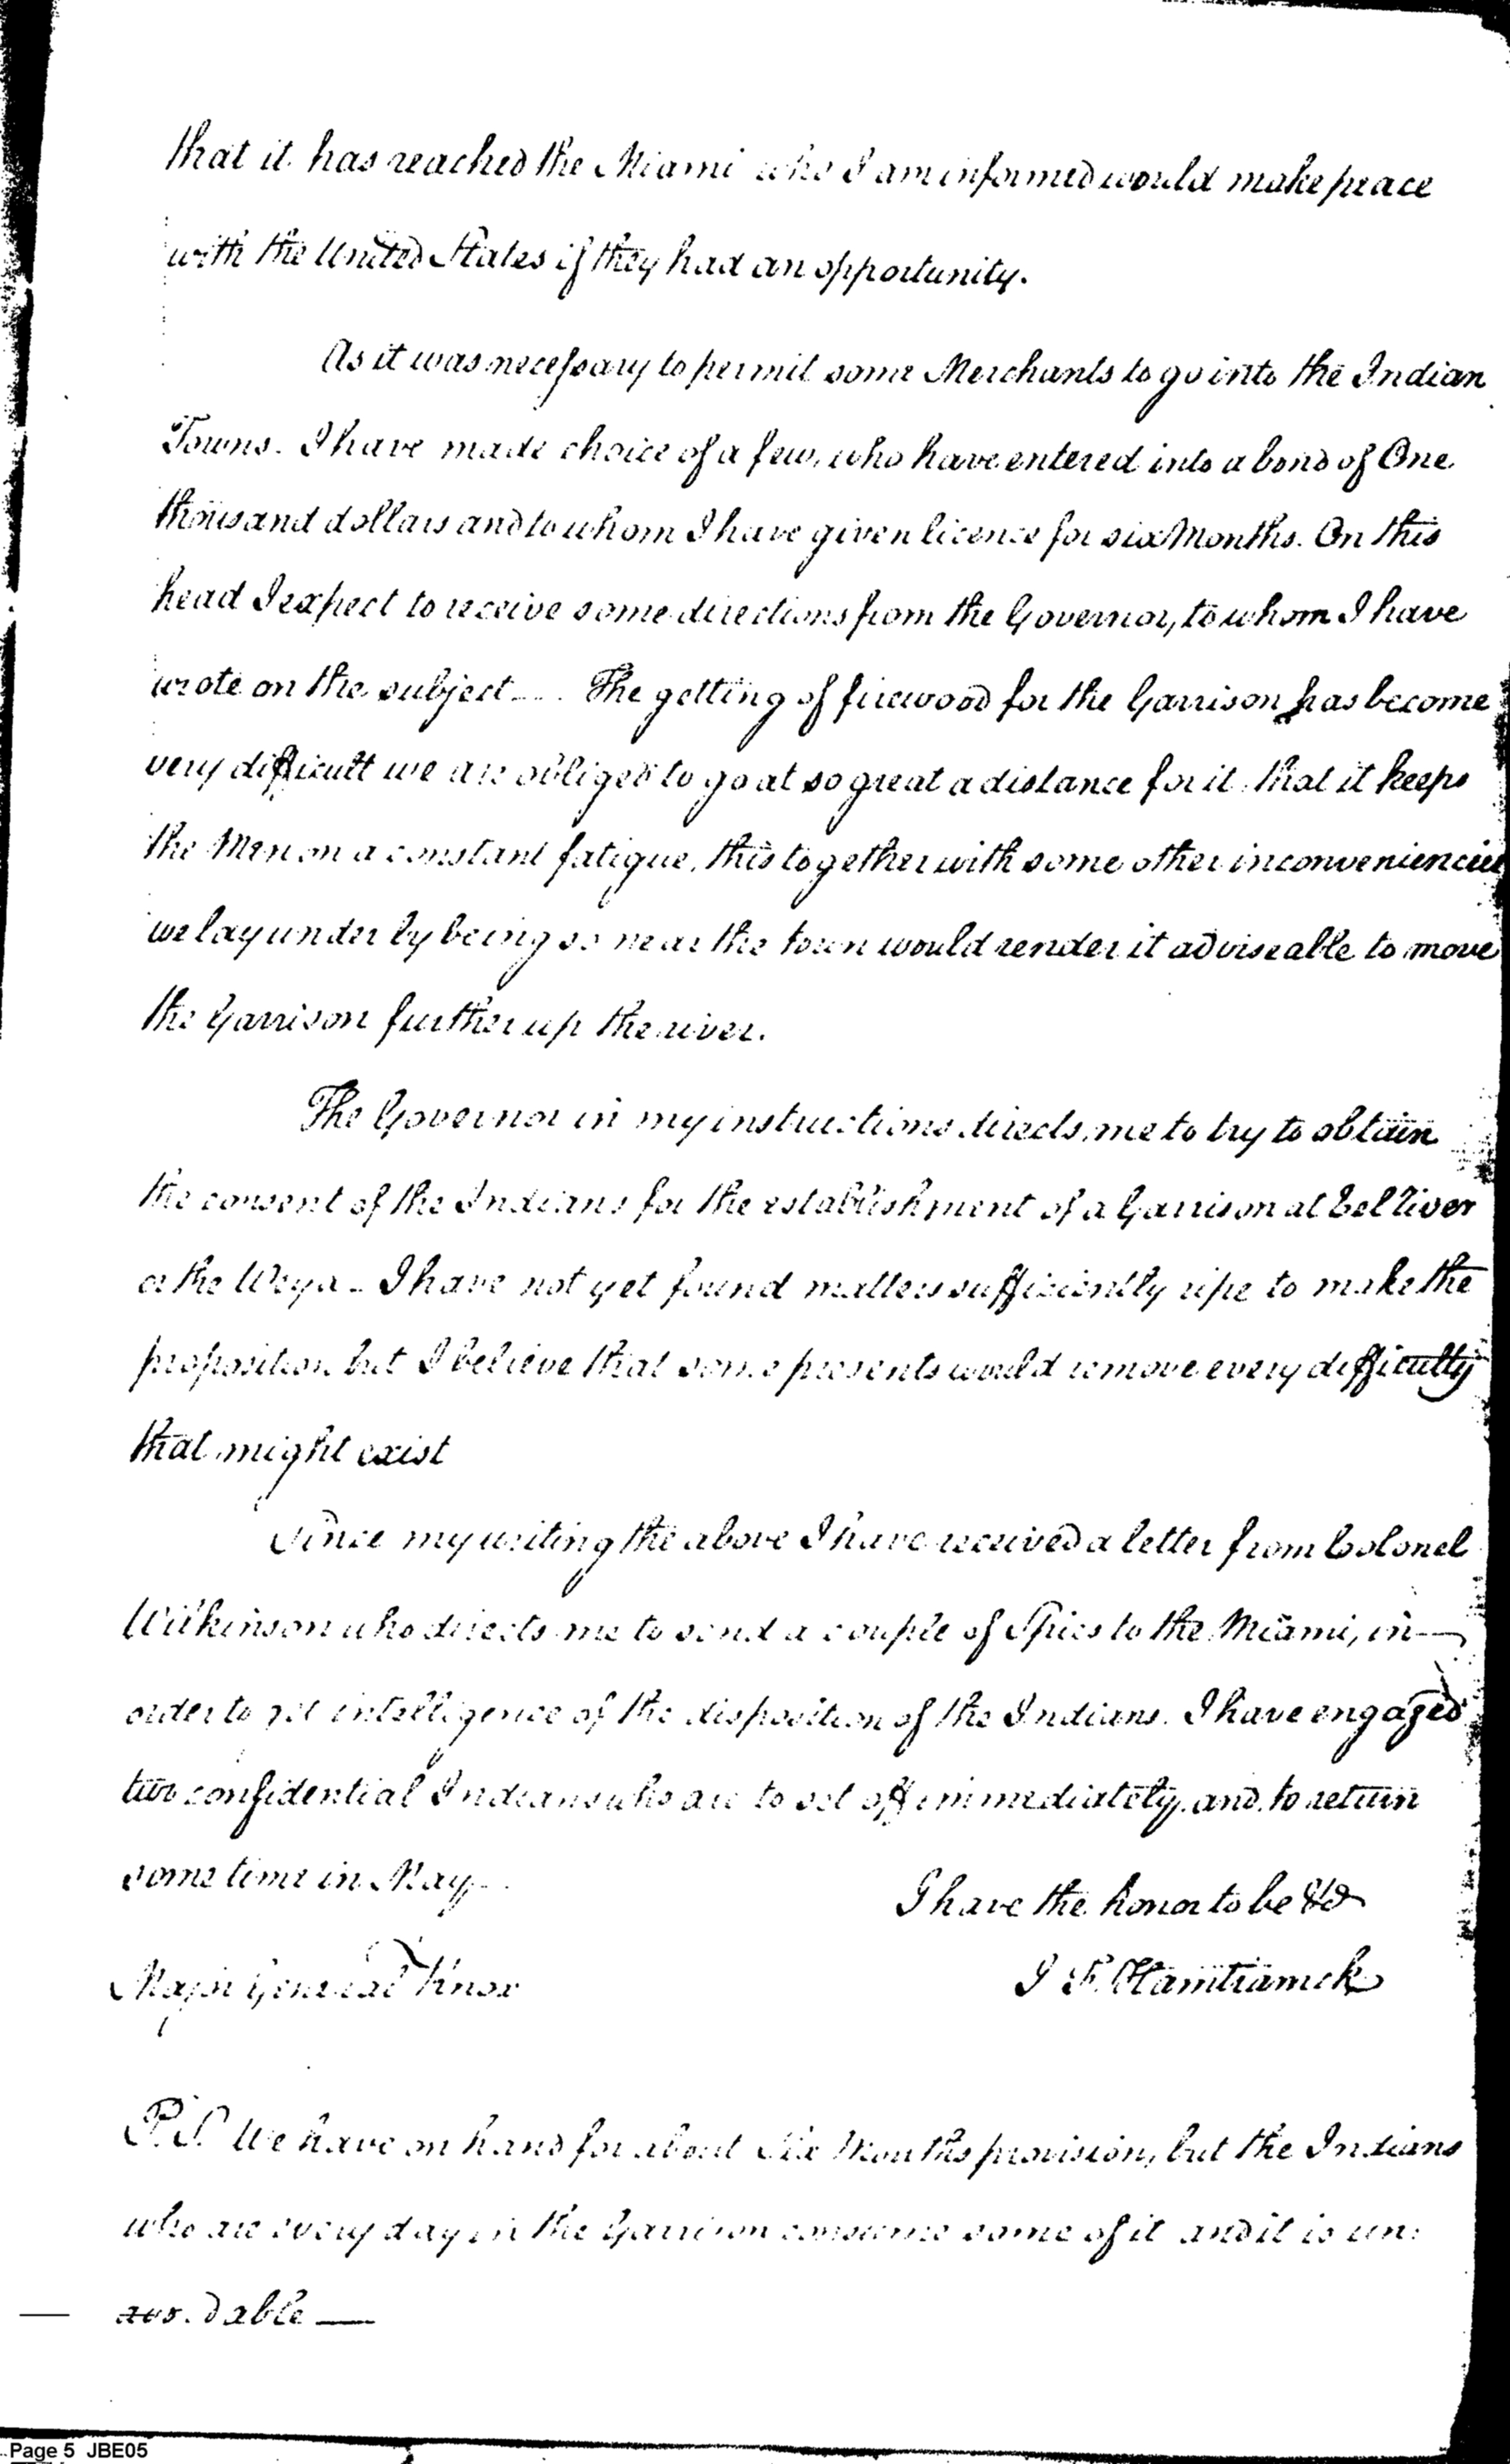 that it has reached the Miami who I am informed would make peace
with the United States if they had an opportunity.
As it was necessary to permit some Merchants to go into the Indian
Towns. I have made choice of a few, who have entered into a bond of One
thousand dollars and to whom I have given licence for six Months. On this
head I expect to receive some directions from the Governor, to whom I have
wrote on the subject — The getting of firewood for the Garrison has become
very difficult we are obliged to go at so great a distance for it, that it keeps
the Men on a constant fatigue, this together with some other inconveniencies
we lay under by being so near the town would render it adviseable to move
the Garrison further up the river.
The Governor in my instructions directs me to try to obtain
the consent of the Indians for the establishment of a Garrison at Eel River
or the Weya - I have not yet found matters sufficiently ripe to make the
proposition but I believe that some presents would remove every difficulty
that might exist
Since my writing the above I have received a letter from Colonel
Wilkinson who directs me to send a couple of Spies to the Miami, in
order to get intelligence of the disposition of the Indians. I have engaged
two confidential Indians who are to set off immediately, and to return
some time in May -
I have the honor to be &c
Major General Knox
J F. Hamtramck
P.S. We have on hand for about Six Months provision, but the Indians
who are every day in the Garrison consume some of it and it is un:
avoidable —
Page 5 JBE05